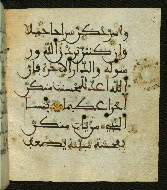 وأسرحكن سراحا جميلا
وإن كنتن تردن الله ور
سوله والدار الآخرة فإن
الله أعد للمحسنت منكن
أجرا عظيما ينسا
النبي من يات منكن
بفحشة مبينة يضعف